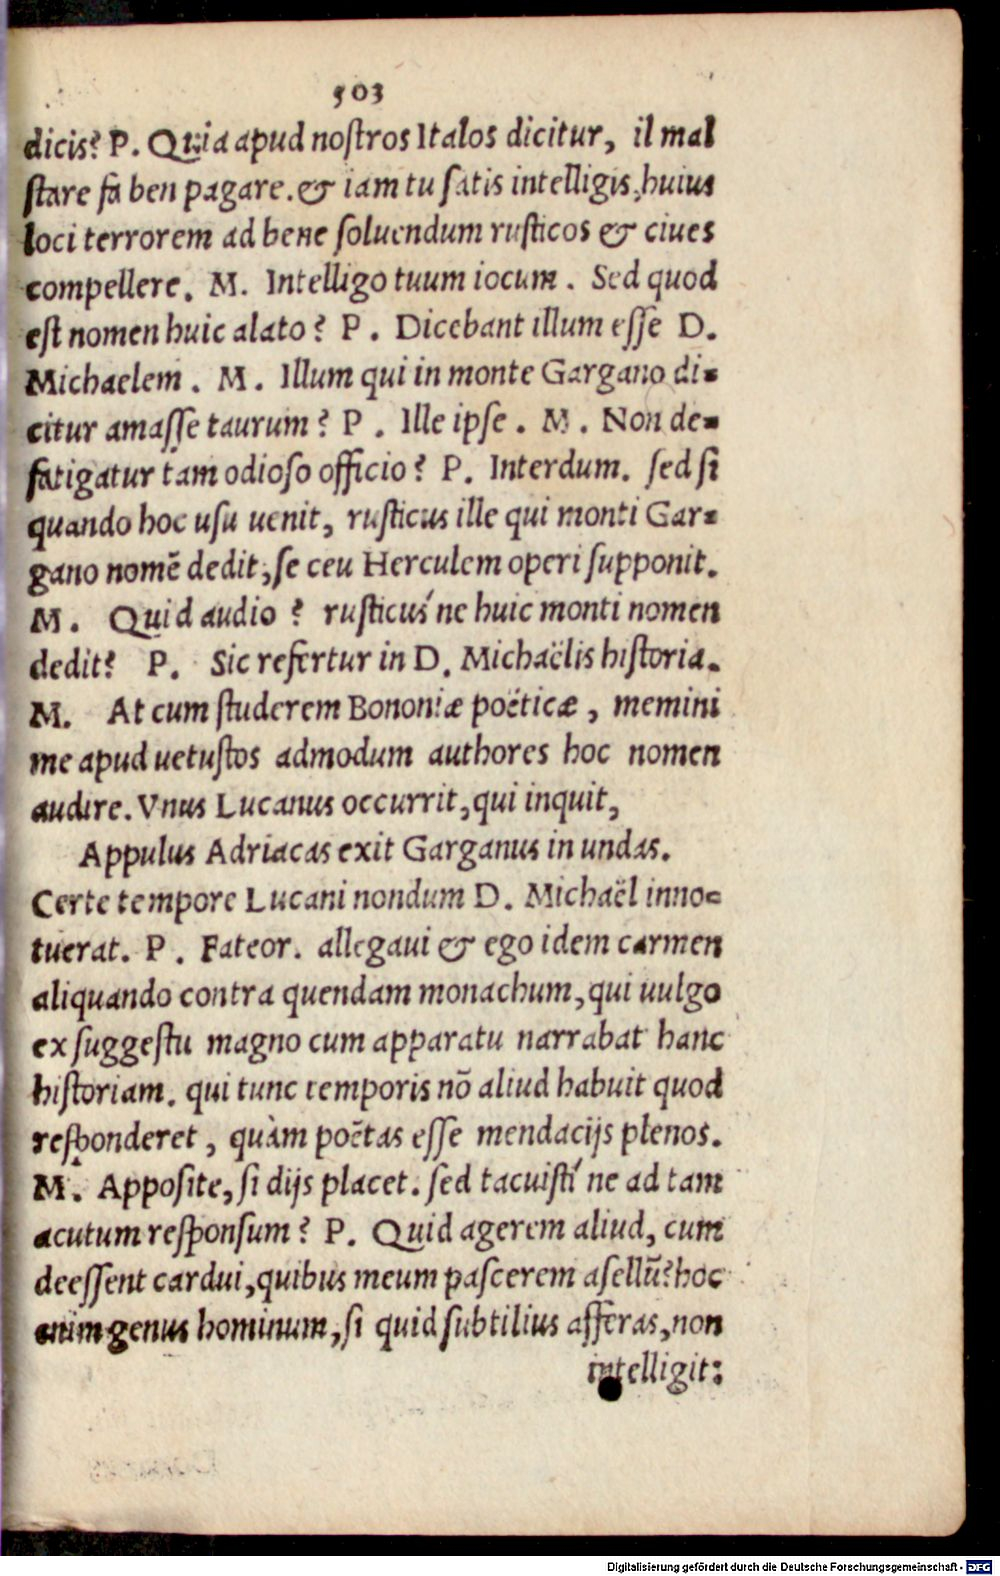 503
dicis? P. Quia apud nostros Italos dicitur, il mal
stare fa ben pagare. & iam tu satis intelligis, huius
loci terrorem ad bene soluendum rusticos & ciues
compellere. M. Intelligo tuum iocum. Sed quod
est nomen huic alato? P. Dicebant illum esse D.
Michaelem. M. Illum qui in monte Gargano di-
citur amasse taurum? P. Ille ipse. M. Non de-
fatigatur tam odioso officio? P. Interdum. sed si
quando hoc usu uenit, rusticus ille qui monti Gar-
gano nomē dedit, se ceu Herculem operi supponit.
M. Quid audio? rusticus´ne huic monti nomen
dedit? P. Sic refertur in D. Michaëlis historia.
M. At cum studerem Bononiæ poëticæ, memini
me apud uetustos admodum authores hoc nomen
audire. Vnus Lucanus occurrit, qui inquit,
Appulus Adriacas exit Garganus in undas.
Certe tempore Lucani nondum D. Michaël inno-
tuerat. P. Fateor. allegaui & ego idem carmen
aliquando contra quendam monachum, qui uulgo
ex suggestu magno cum apparatu narrabat hanc
historiam. qui tunc temporis nō aliud habuit quod
responderet, quàm poëtas esse mendacijs plenos.
M. Apposite, si dijs placet. sed tacuisti´ne ad tam
acutum responsum? P. Quid agerem aliud, cum
deessent cardui, quibus meum pascerem asellū? hoc
enim genus hominum, si quid subtilius afferas, non
intelligit:
Digitalisierung gefördert durch die Deutsche Forschungsgemeinschaft - DFG